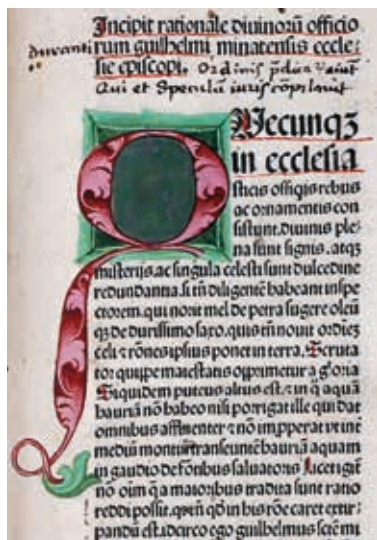 Incipit rationale diuinoꝝ officio
rum guilhelmi minatensis eccle⸗
sie episcopi. Ordinis p̄dicatorum
duranti
Qui et Speculū iuris cōpilauit
Quecunqꝫ
in ecclesia
sticis officijs rebus
ac ornamentis con
sistunt. diuinis ple⸗
na sunt signis. atqꝫ
misterijs. ac singula celesti sunt dulcedine
redundantia. si tn̄ diligentē habeant inspe
ctorem. qui norit mel de petra sugere oleū
qꝫ de durissimo saxo. quis tn̄ nouit ordinē
celi ⁊ rōnes ipsius ponet in terra. Scruta
tor quippe maiestatis opprimetur a gloria
Siquidem puteus altus est. ⁊ in q̊ aquā
hauriā nō habeo nisi porrigat ille qui dat
omnibus affluenter ⁊ nō improperat vt int̄
mediū montiū transeuntē hauriā aquam
in gaudio de fontibus saluatoris. Licet igit̄
nō oīm q̄ a maioribus tradita sunt ratio
reddi possit. quin qd̄ in his rōe caret extir⸗
pandū est. idcirco ego guilhelmus scēmi